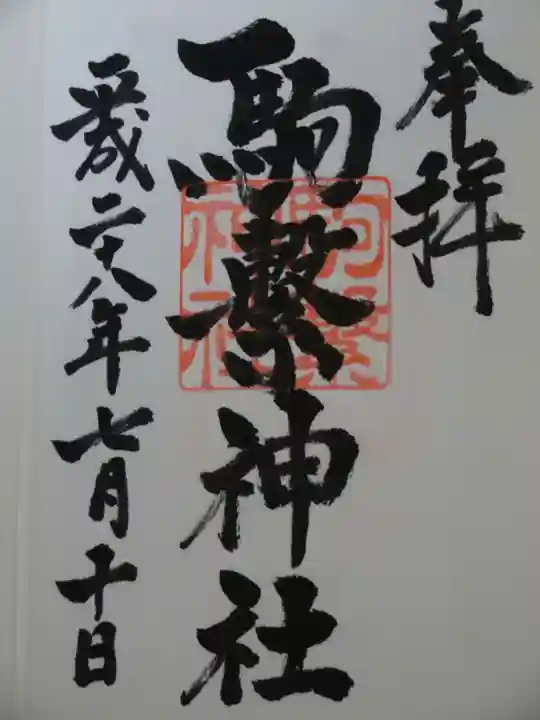 奉拝
駒繋神社
駒繋
神社
平成二十八年七月十日